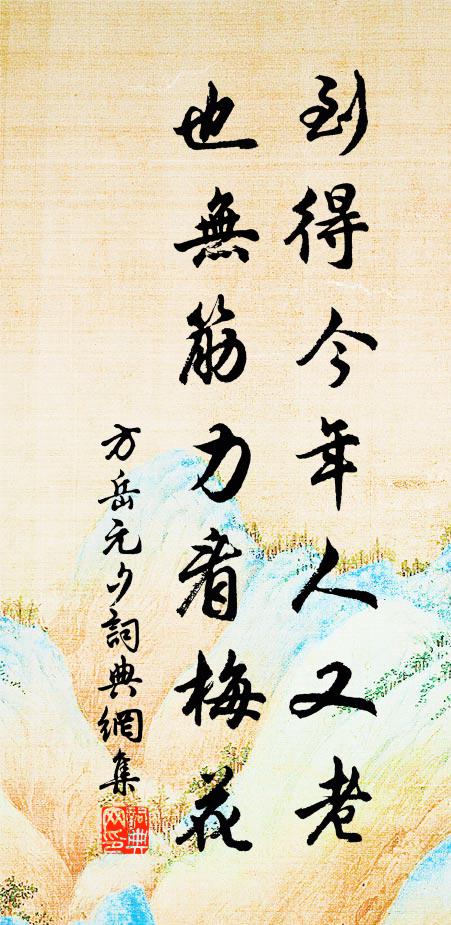 到得今年人又老
也無筋力看梅花
方岳元夕詞典網集
詞典網印